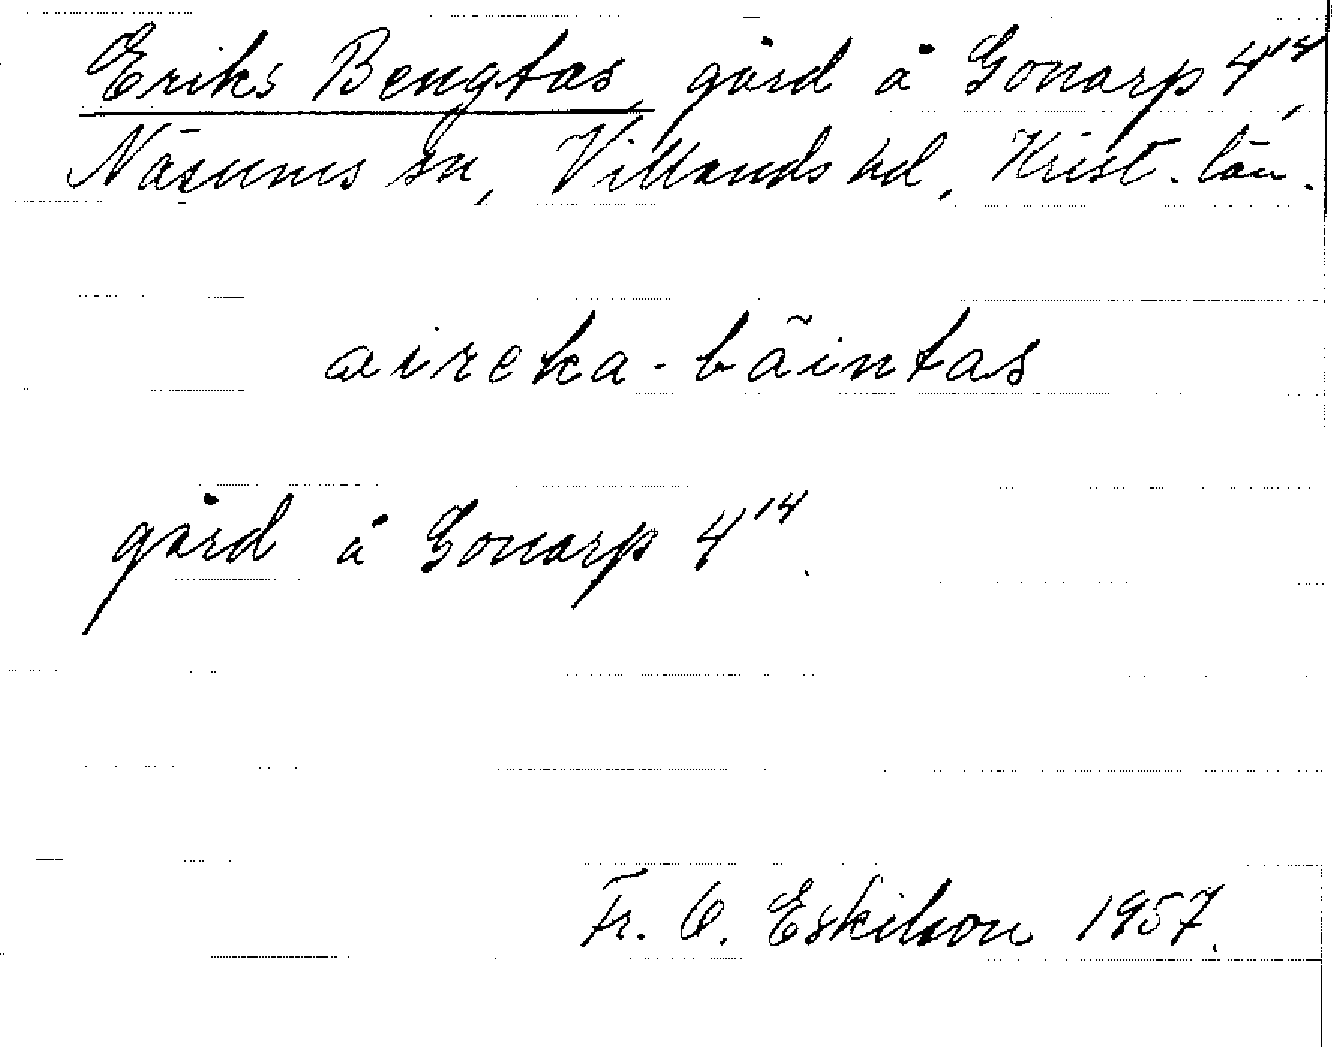 Eriks Bengtas, gård å Gonarp 4¹⁴,
Näsums sn, Villands hd, Krist. län.
aireka-bãintas
gård å Gonarp 4¹⁴.
Fr. O. Eskilson 1957.